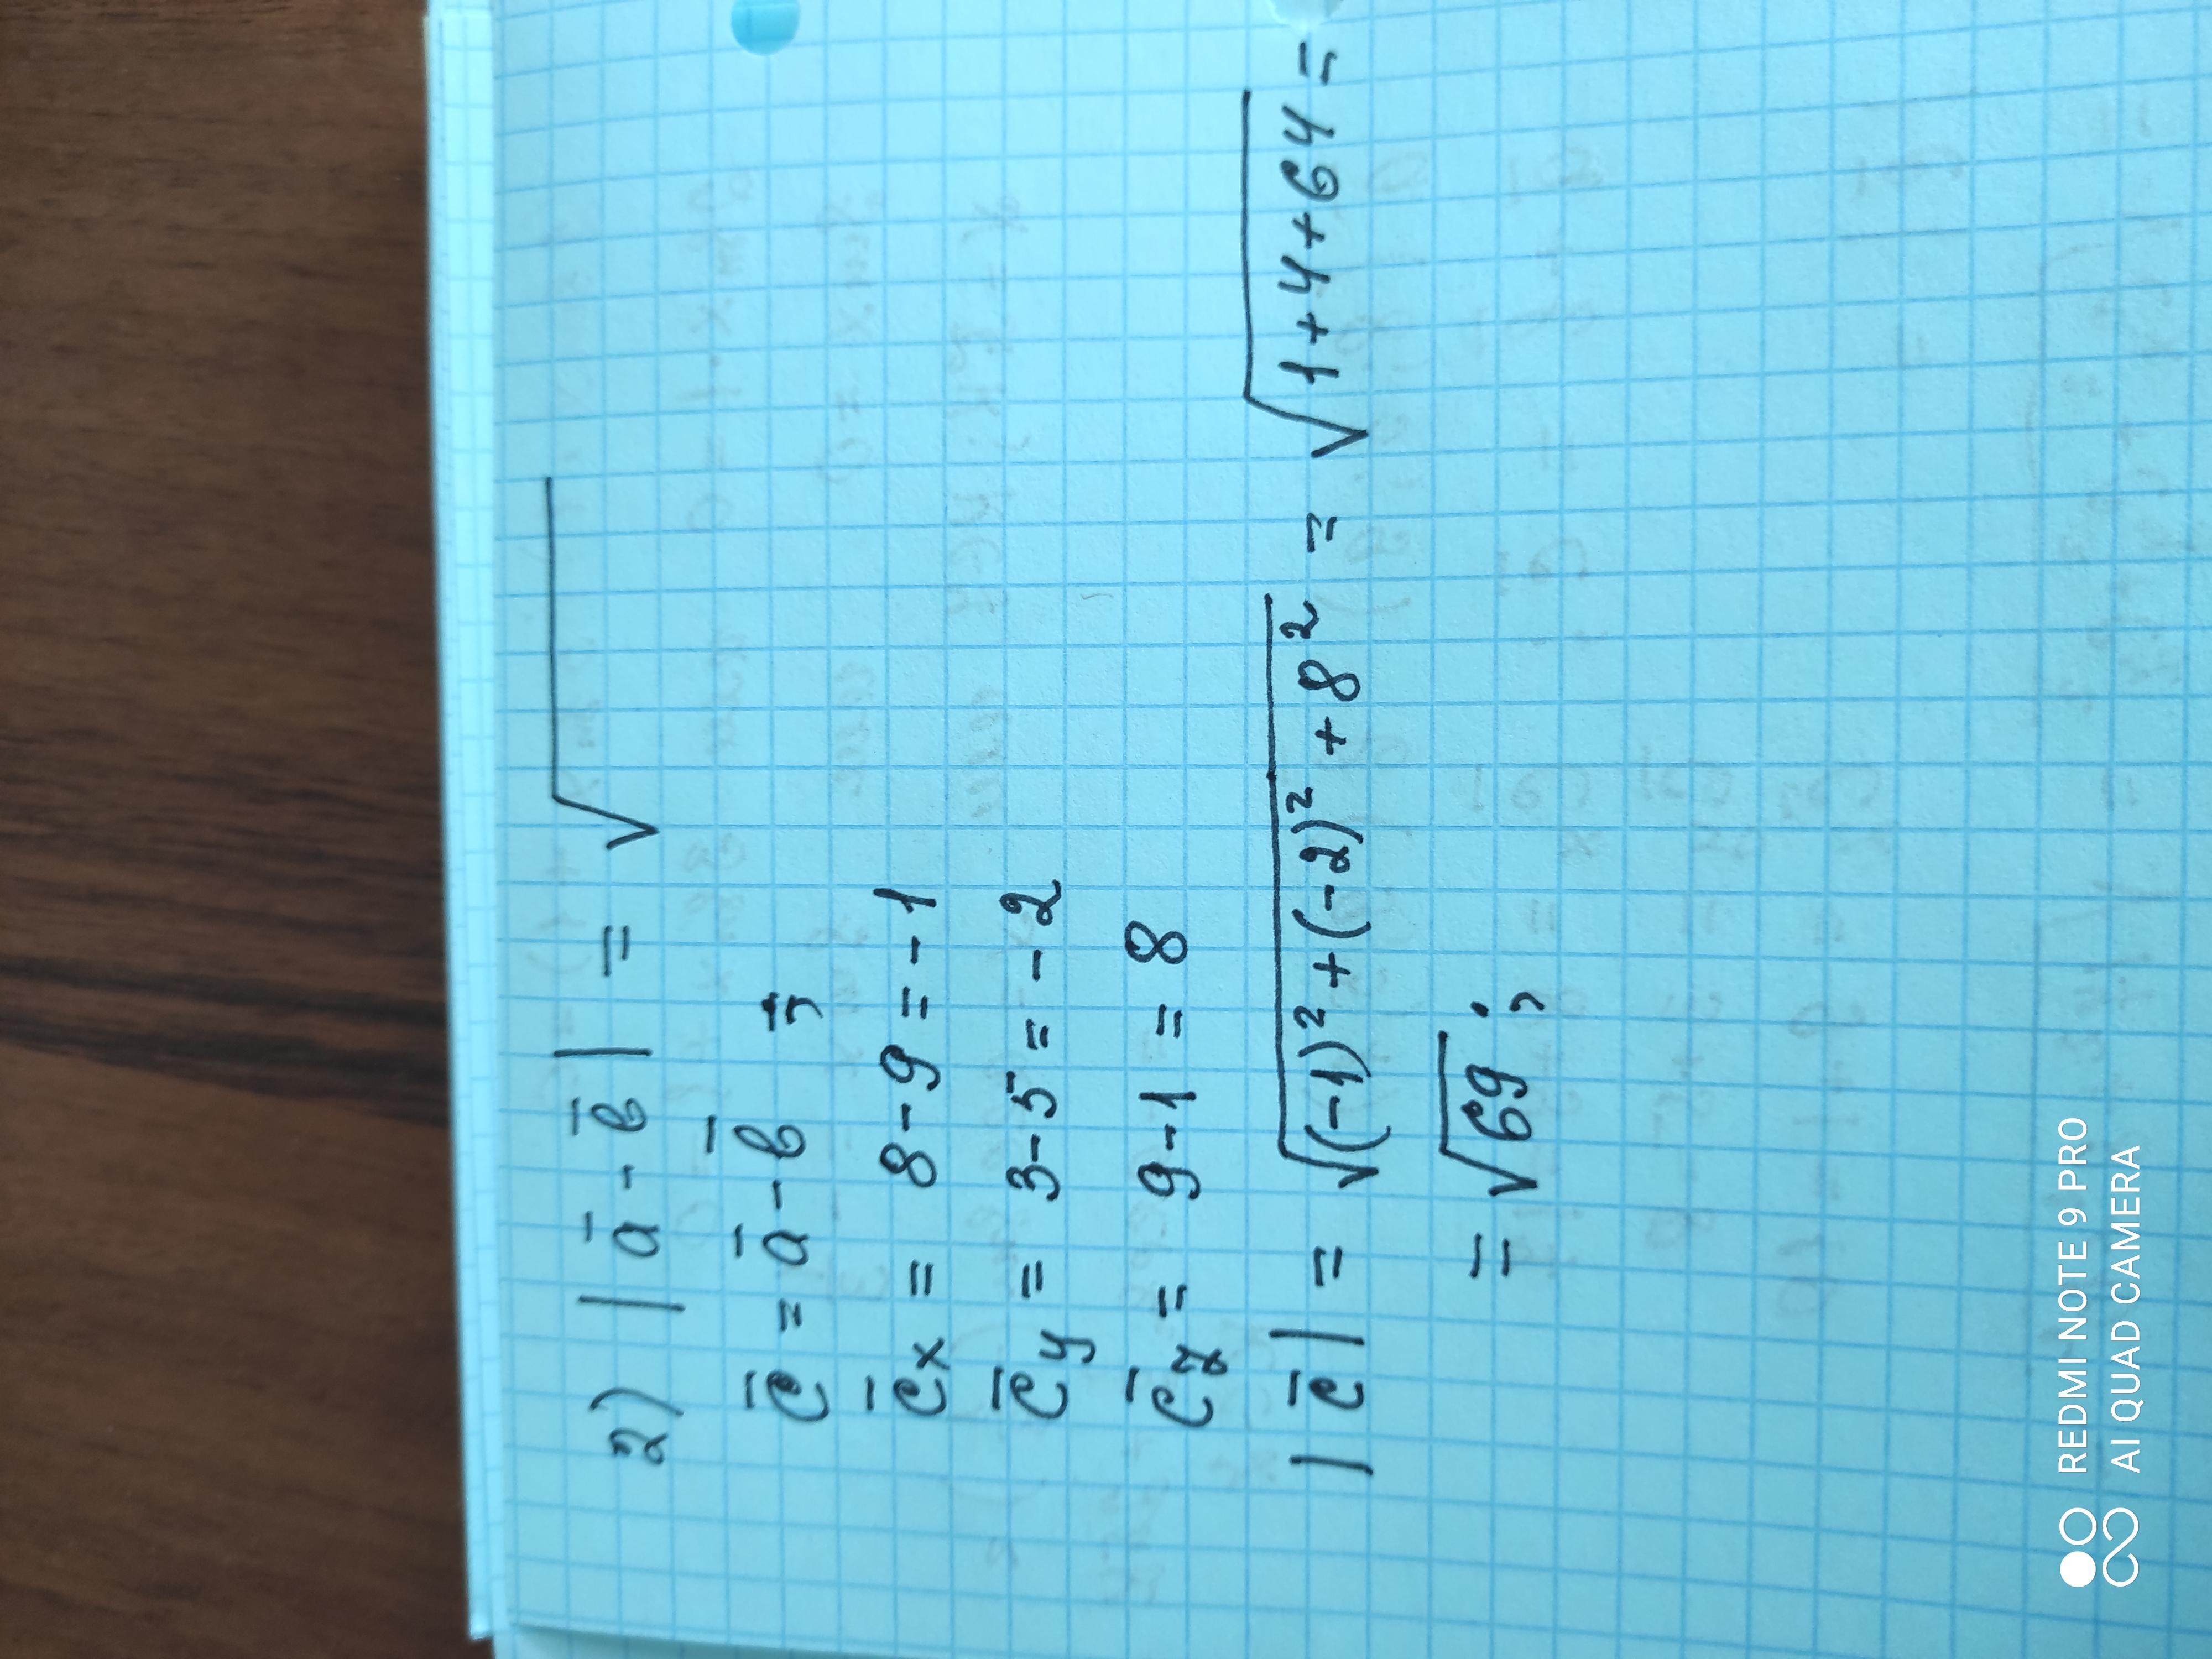 2) | a̅ - b̅ | = √
c̅ = a̅ - b̅ ;
c̅x = 8-9 = -1
c̅y = 3-5 = -2
c̅z = 9-1 = 8
| c̅ | = √(-1)² + (-2)² + 8² = √1+4+64 =
= √69 ;
REDMI NOTE 9 PRO
AI QUAD CAMERA